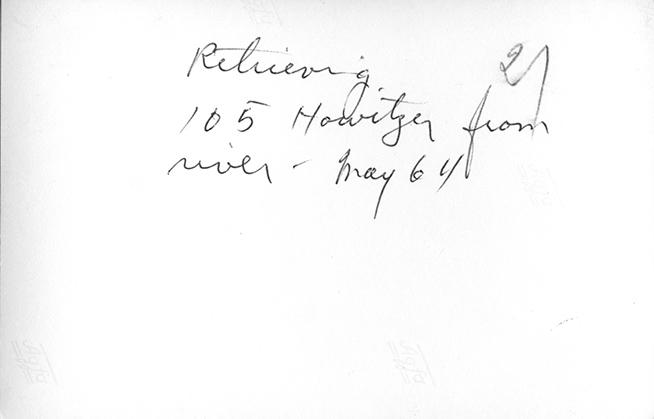 Retrieving 27
105 Howitzer from
river - May 64
Agfa
Agfa